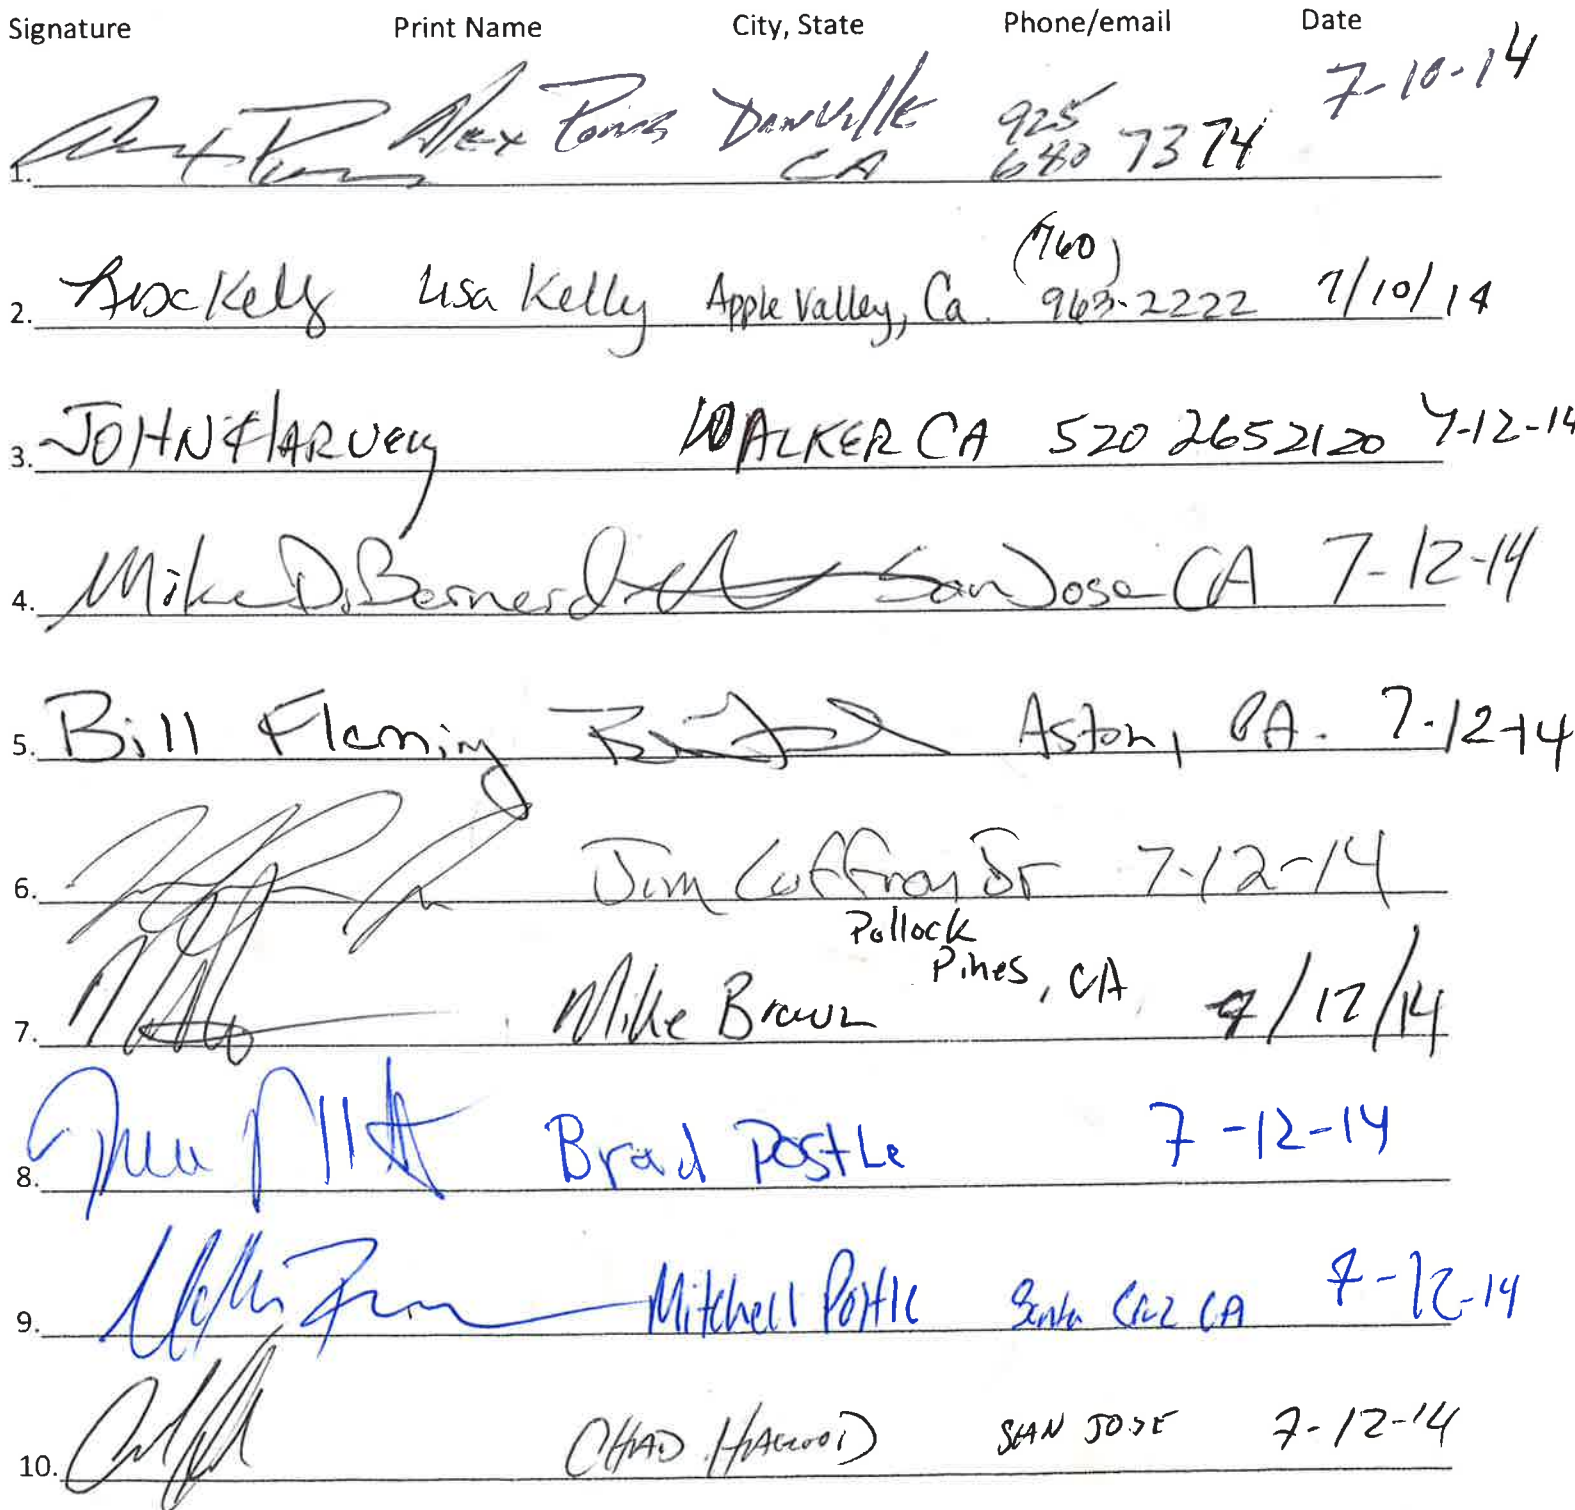 Signature Print Name City, State Phone/email Date
1. Alex Danville CA 925 680 7374 7-10-14
2. Lisa Kelly Apple Valley, Ca. (760) 963-2222 7/10/14
3. JOHN HARVEY WALKER CA 520 2652120 7-12-14
4. Mike DiBernardo San Jose CA 7-12-14
5. Bill Fleming Aston, PA. 7-12-14
6. Jim Jr 7-12-14
Pollock
Pines, CA
7. Mike Brown 7/12/14
8. Brad Postle 7-12-14
9. Mitchell Postle Santa Cruz CA 7-12-14
10. CHAD SAN JOSE 7-12-14